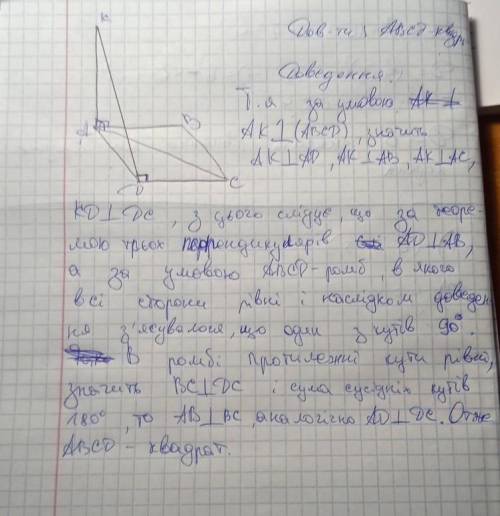 K
Дов-ти: ABCD-квадр
Доведення:
A
B
Т.я за умовою AK⊥
AK⊥(ABCD), значить
AK⊥AD, AK⊥AB, AK⊥AC,
D
C
KD⊥DC, з цього слідує, що за теоре-
мою трьох перпендикулярів AD⊥AB,
а за умовою ABCD-ромб, в якого
всі сторони рівні і наслідком доведен
ня з'ясувалося, що один з кутів 90°.
В ромбі протилежні кути рівні,
значить BC⊥DC і сума сусідніх кутів
180°, то AB⊥BC, аналогічно AD⊥DC. Отже
ABCD – квадрат.